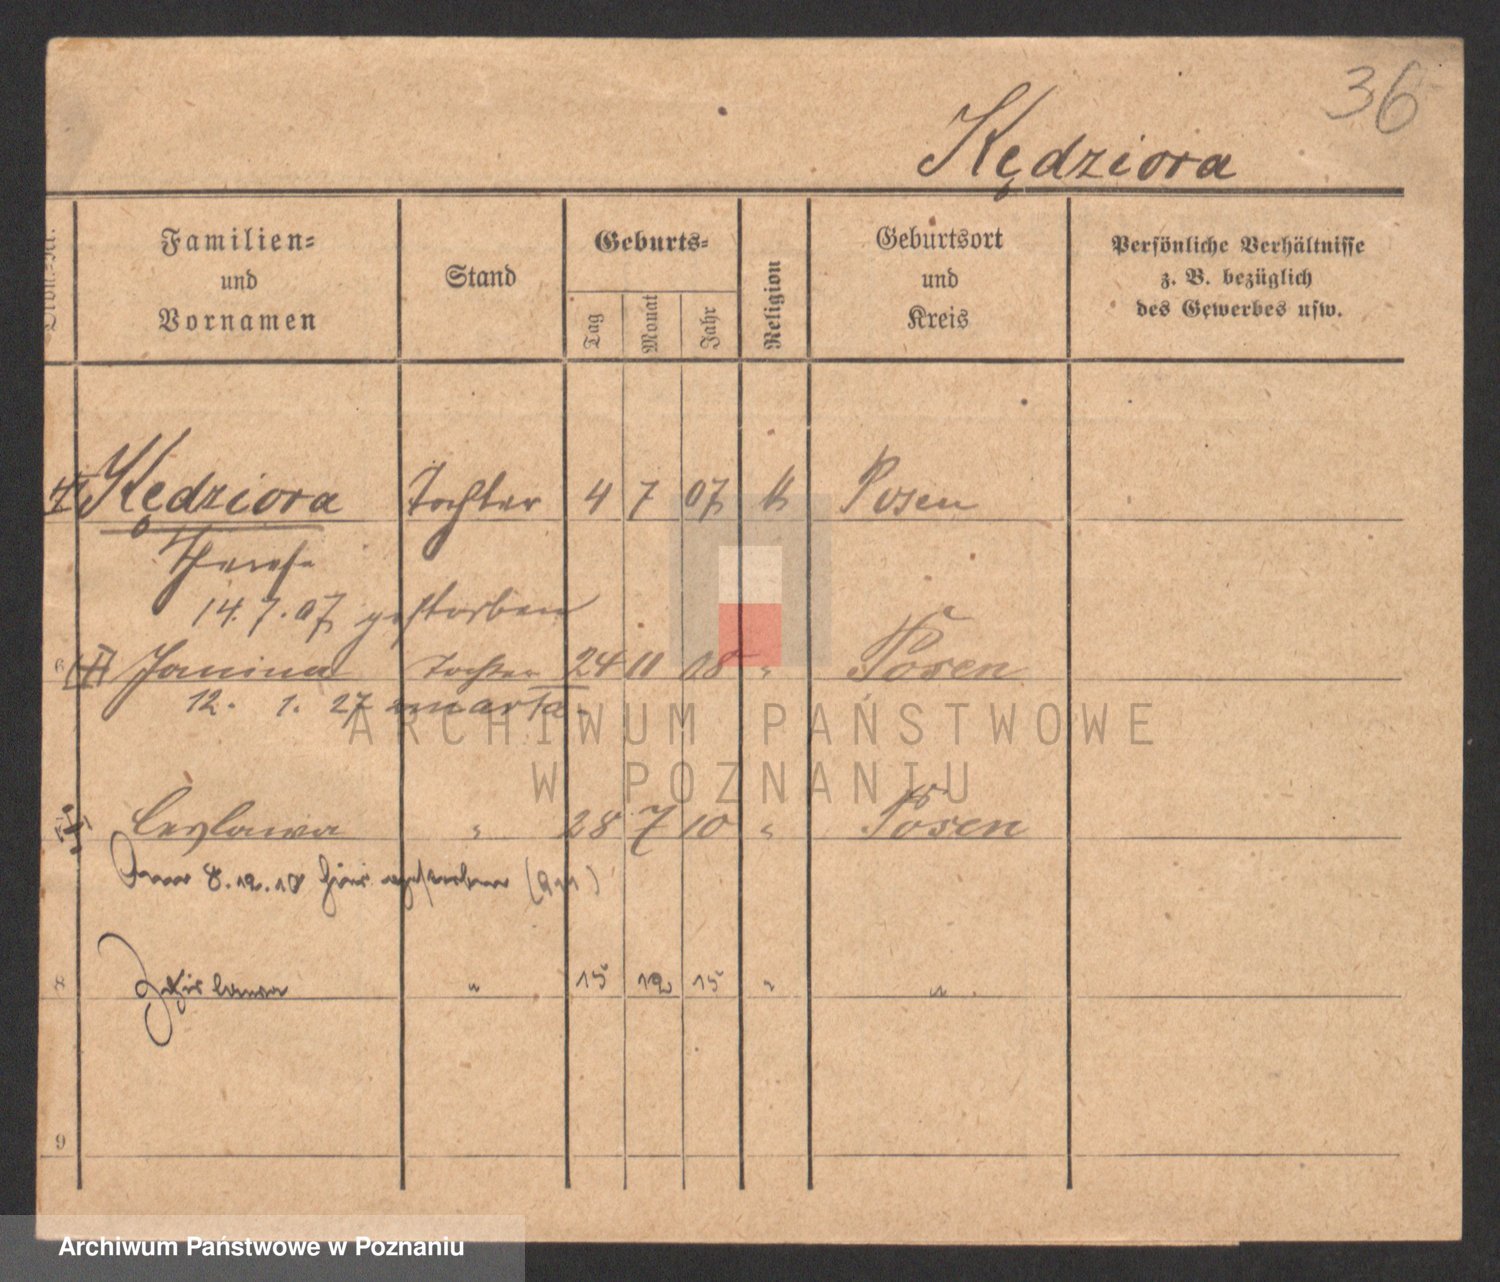 36
Kędziora
Familien=
und
Vornamen
Stand
Geburts=
Tag
Monat
Jahr
Religion
Geburtsort
und
Kreis
Persönliche Verhältnisse
z. B. bezüglich
des Gewerbes usw.
Kędziora Tochter 4 7 07 k Posen
14.7.07 gestorben
6 Janina Tochter 24 11 08 " Posen
12. 1. 27 umarła.
Czesława " 28 7 10 " Posen
8.12.10 hier gestorben
8 Zdzisława " 15 12 15 " "
9
ARCHIWUM PAŃSTWOWE
W POZNANIU
Archiwum Państwowe w Poznaniu